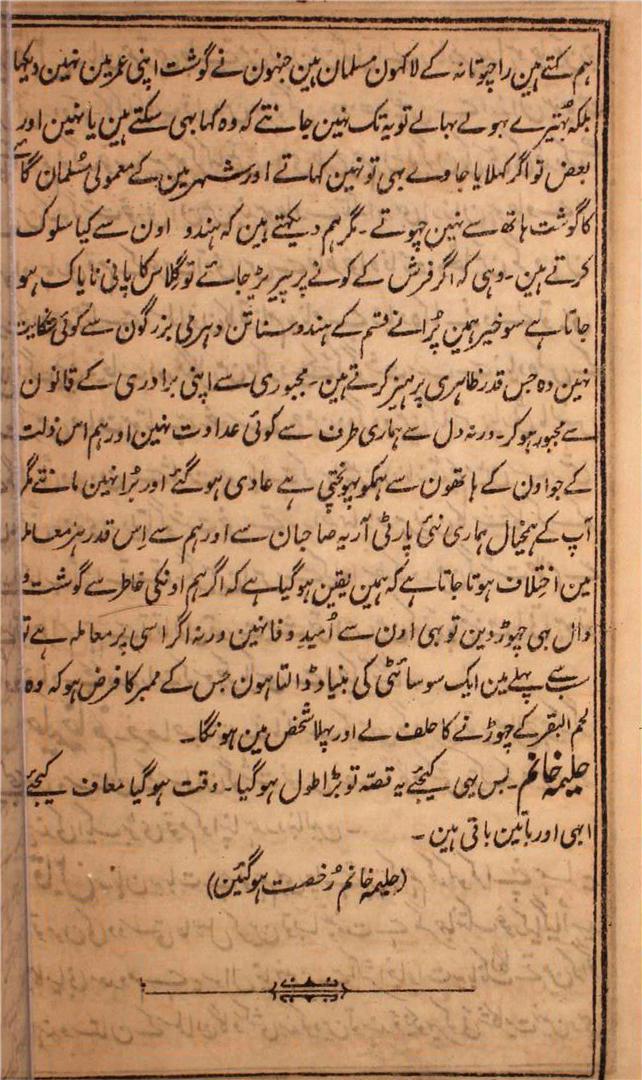 ہم کہتے ہین راجپوتانہ کے لاکہون مسلمان ہین جنہون نے گوشت اپنی عمر مین نہین دیکہا
بلکہ بُہتیرے بہولے بہالے تو یہ تک نہین جانتے کہ وہ کہا بہی سکتے ہین یا نہین اور
بعض تو اگر کہلایا جاوے بہی تو نہین کہاتے اور شہر مین کے معمولی مُسلمان گائے
کا گوشت ہاتھ سے نہین چہوتے ۔ مگر ہم دیکہتے ہین کہ ہندو اون سے کیا سلوک
کرتے ہین ۔ وہی کہ اگر فرش کے کونے پر پیر پڑ جائے تو گلاس کا پانی ناپاک ہو
جاتا ہے سو خیر ہمین پُرانے قسم کے ہندو سناتن دہرمی بزرگون سے کوئی شکایت
نہین وہ جس قدر ظاہری پرہیز کرتے ہین ۔ مجبوری سے اپنی برادری کے قانون
سے مجبور ہو کر ۔ ورنہ دل سے ہماری طرف سے کوئی عداوت نہین اور ہم اس ذلت
کے جو اون کے ہاتھون سے ہمکو پہونچتی ہے عادی ہو گئے اور بُرا نہین مانتے مگر
آپ کے ہمخیال ہماری نئی پارٹی آریہ صاحبان سے اور ہم سے اِس قدر ہر معاملہ
مین اختلاف ہوتا جاتا ہے کہ ہمین یقین ہو گیا ہے کہ اگر ہم اونکی خاطر سے گوشت و
دال بہی چہوڑ دین تو بہی اون سے اُمیدِ وفا نہین ورنہ اگر اسی پر معاملہ ہے تو
سب سے پہلے مین ایک سوسائٹی کی بنیاد ڈالتا ہون جس کے ممبر کا فرض ہو کہ وہ
لحم البقر کے چہوڑنے کا حلف لے اور پہلا شخص مین ہونگا ۔
حلیمہ خانم ۔ بس یہی کیجئے یہ قصّہ تو بڑا طول ہو گیا ۔ وقت ہو گیا معاف کیجئے
ابہی اور باتین باقی ہین ۔
(حلیمہ خانم رُخصت ہو گئین)